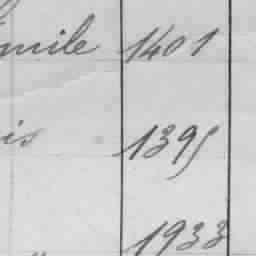 Emile 1401
is 1395
1933